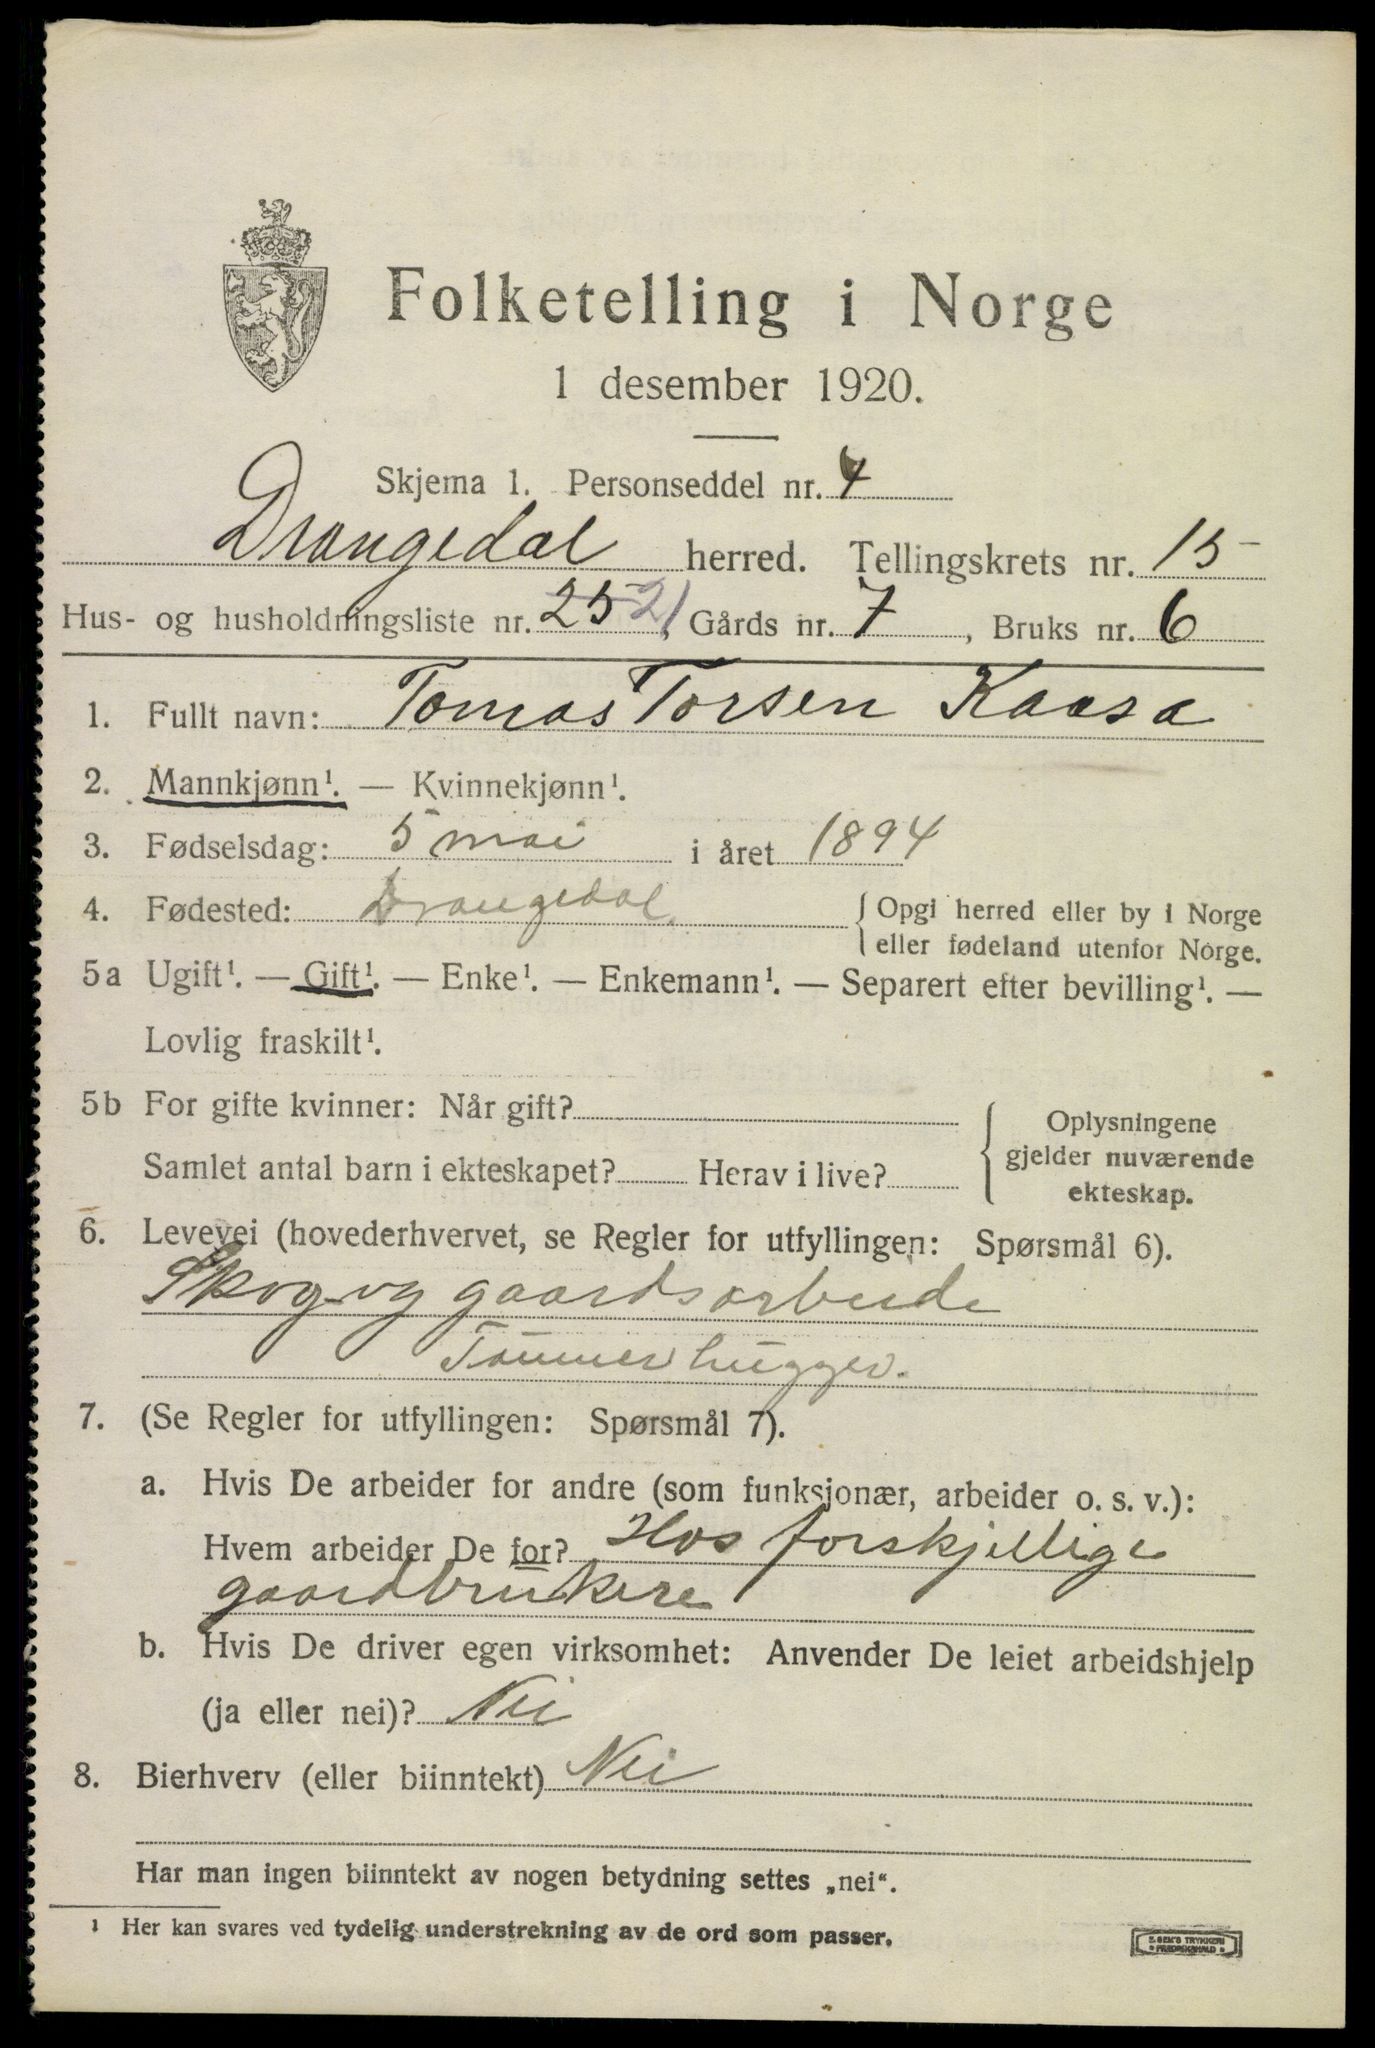 Folketelling i Norge
1 desember 1920.
Skjema 1. Personseddel nr. 4
Drangedal herred. Tellingskrets nr. 15
Hus- og husholdningsliste nr. 25 21, Gårds nr. 7, Bruks nr. 6
1. Fullt navn: Tomas Torsen Kaasa
2. Mannkjønn¹. — Kvinnekjønn¹.
3. Fødselsdag: 5 mai i året 1894
4. Fødested: Drangedal. { Opgi herred eller by i Norge
eller fødeland utenfor Norge.
5a Ugift¹. — Gift¹. — Enke¹. — Enkemann¹. — Separert efter bevilling¹. —
Lovlig fraskilt¹.
5b For gifte kvinner: Når gift?
Samlet antal barn i ekteskapet? Herav i live?
Oplysningene
gjelder nuværende
ekteskap.
6. Levevei (hovederhvervet, se Regler for utfyllingen: Spørsmål 6).
Skog og gaardsarbeide
Tømmerhugger.
7. (Se Regler for utfyllingen: Spørsmål 7).
a. Hvis De arbeider for andre (som funksjonær, arbeider o. s. v.):
Hvem arbeider De for? Hos forskjellige
gaardbrukere
b. Hvis De driver egen virksomhet: Anvender De leiet arbeidshjelp
(ja eller nei)? Nei
8. Bierhverv (eller biinntekt) Nei
Har man ingen biinntekt av nogen betydning settes „nei“.
¹ Her kan svares ved tydelig understrekning av de ord som passer.
E. SEM'S TRYKKERI
FREDRIKSHALD